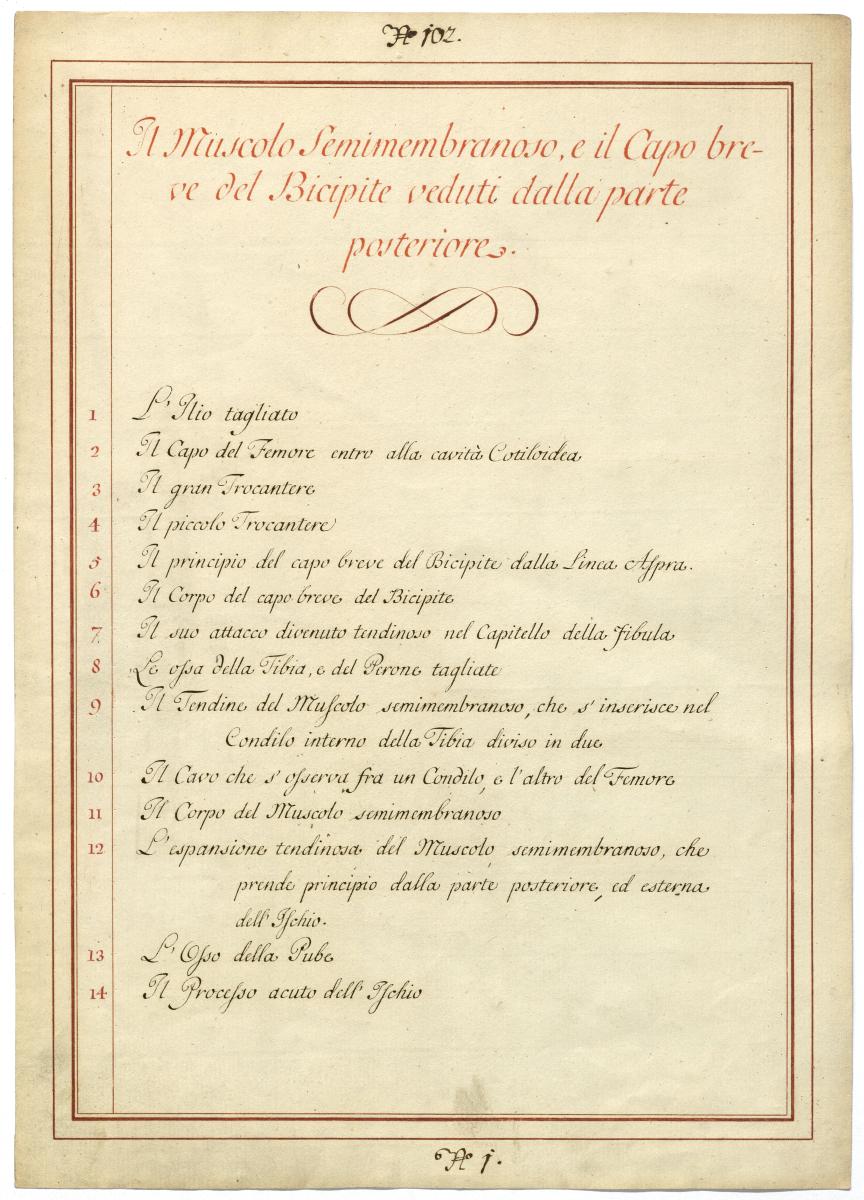 Nº 102.
Il Muscolo Semimembranoso, e il Capo bre-
ve del Bicipite veduti dalla parte
posteriore.
1 L' Ilio tagliato
2 Il Capo del Femore entro alla cavità Cotiloidea
3 Il gran Trocantere
4 Il piccolo Trocantere
5 Il principio del capo breve del Bicipite dalla Linea Aſpra.
6 Il Corpo del capo breve del Bicipite
7 Il suo attacco divenuto tendinoso nel Capitello della fibula
8 Le oſsa della Tibia, e del Perone tagliate
9 Il Tendine del Muſcolo semimembranoso, che s' inserisce nel
Condilo interno della Tibia diviso in due
10 Il Cavo che s' oſserva fra un Condilo, e l'altro del Femore
11 Il Corpo del Muscolo semimembranoso
12 L'espansione tendinosa del Muscolo semimembranoso, che
prende principio dalla parte posteriore, ed esterna
dell' Iſchio.
13 L' Oſso della Pube
14 Il Proceſso acuto dell' Iſchio
Nº 1.